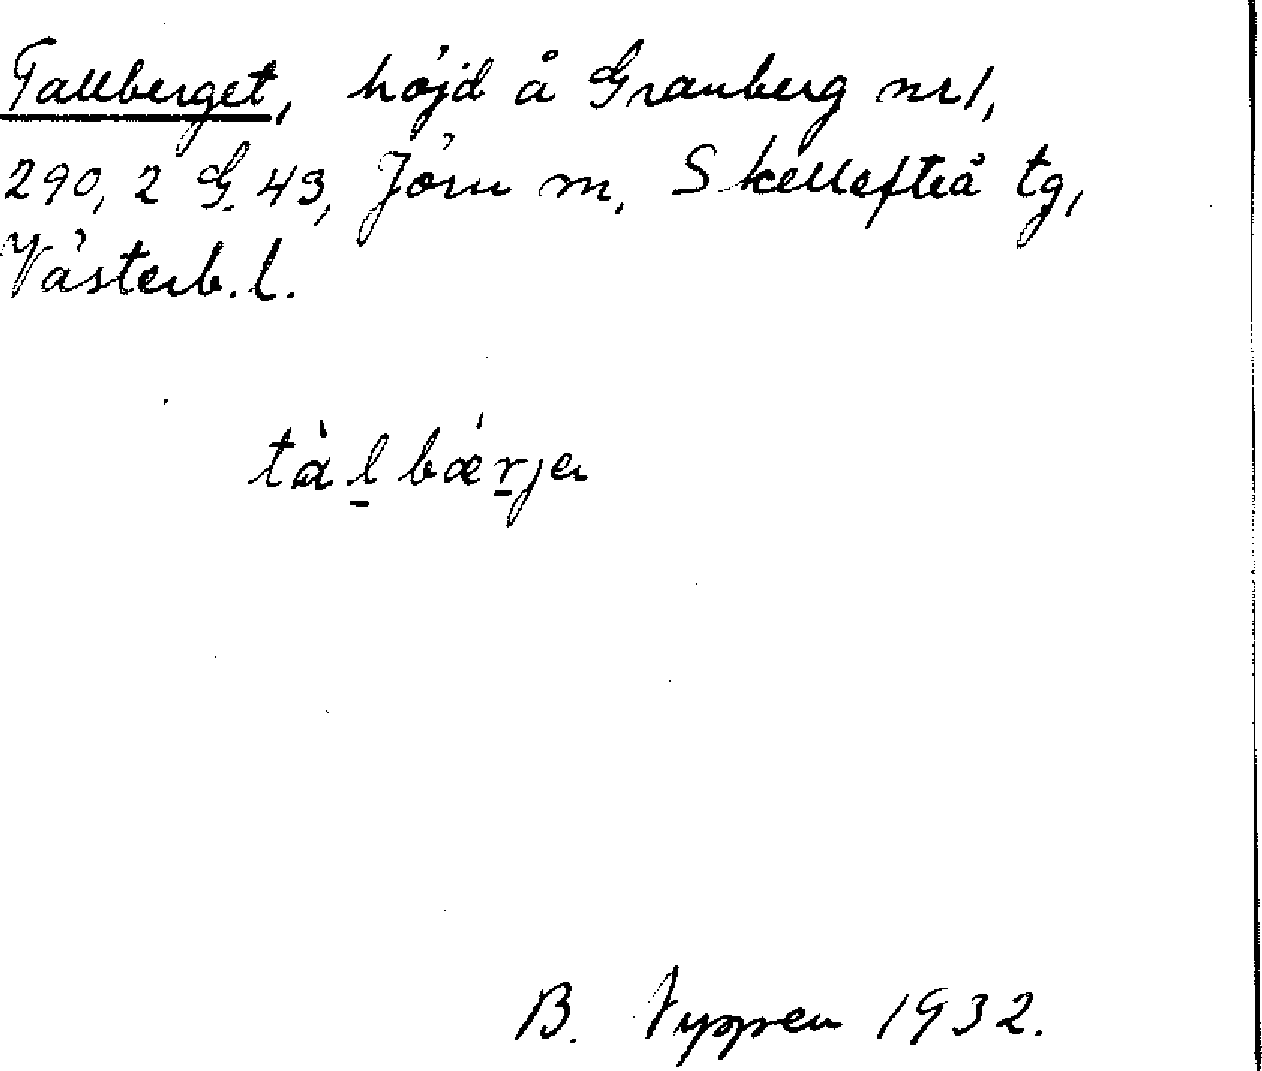 Tallberget, höjd å Granberg nr 1,
290, 2 G. 43, Jörn m, Skellefteå tg,
Västerb. l.
tàḻ bæ´ṟja
B. 1932.